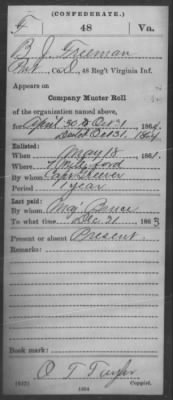 (CONFEDERATE.)
F 48 Va.
B. J. Freeman
Pvt, Co. D, 48 Reg't Virginia Inf.
Appears on
Company Muster Roll
of the organization named above,
for April 30 to Oct 31, 1864.
dated Oct 31 1864
Enlisted:
When May 18, 1861.
Where
By whom Capt Greever
Period 1 year
Last paid:
By whom Maj. Bruce
To what time Dec. 31, 1863
Present or absent Present
Remarks:
Book mark:
O T Taylor
(642) Copyist.